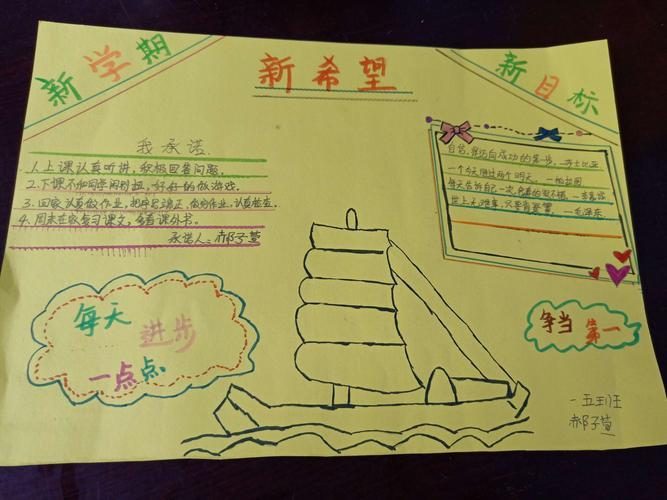 新学期
新希望
新目标
我承诺
1.上课认真听讲，积极回答问题。
2.下课不和同学闹别扭，好好的做游戏。
3.回家认真做作业，把字写端正，做好作业认真检查。
4.周末在家复习课文，多看课外书。
承诺人：郝子萱
自信，是迈向成功的第一步。
一个今天胜过两个明天。
每天告诉自己一次，我真的很不错。
世上无难事，只要肯登攀。—毛泽东
每天
进步
一点点
争当第一
一五班
郝子萱